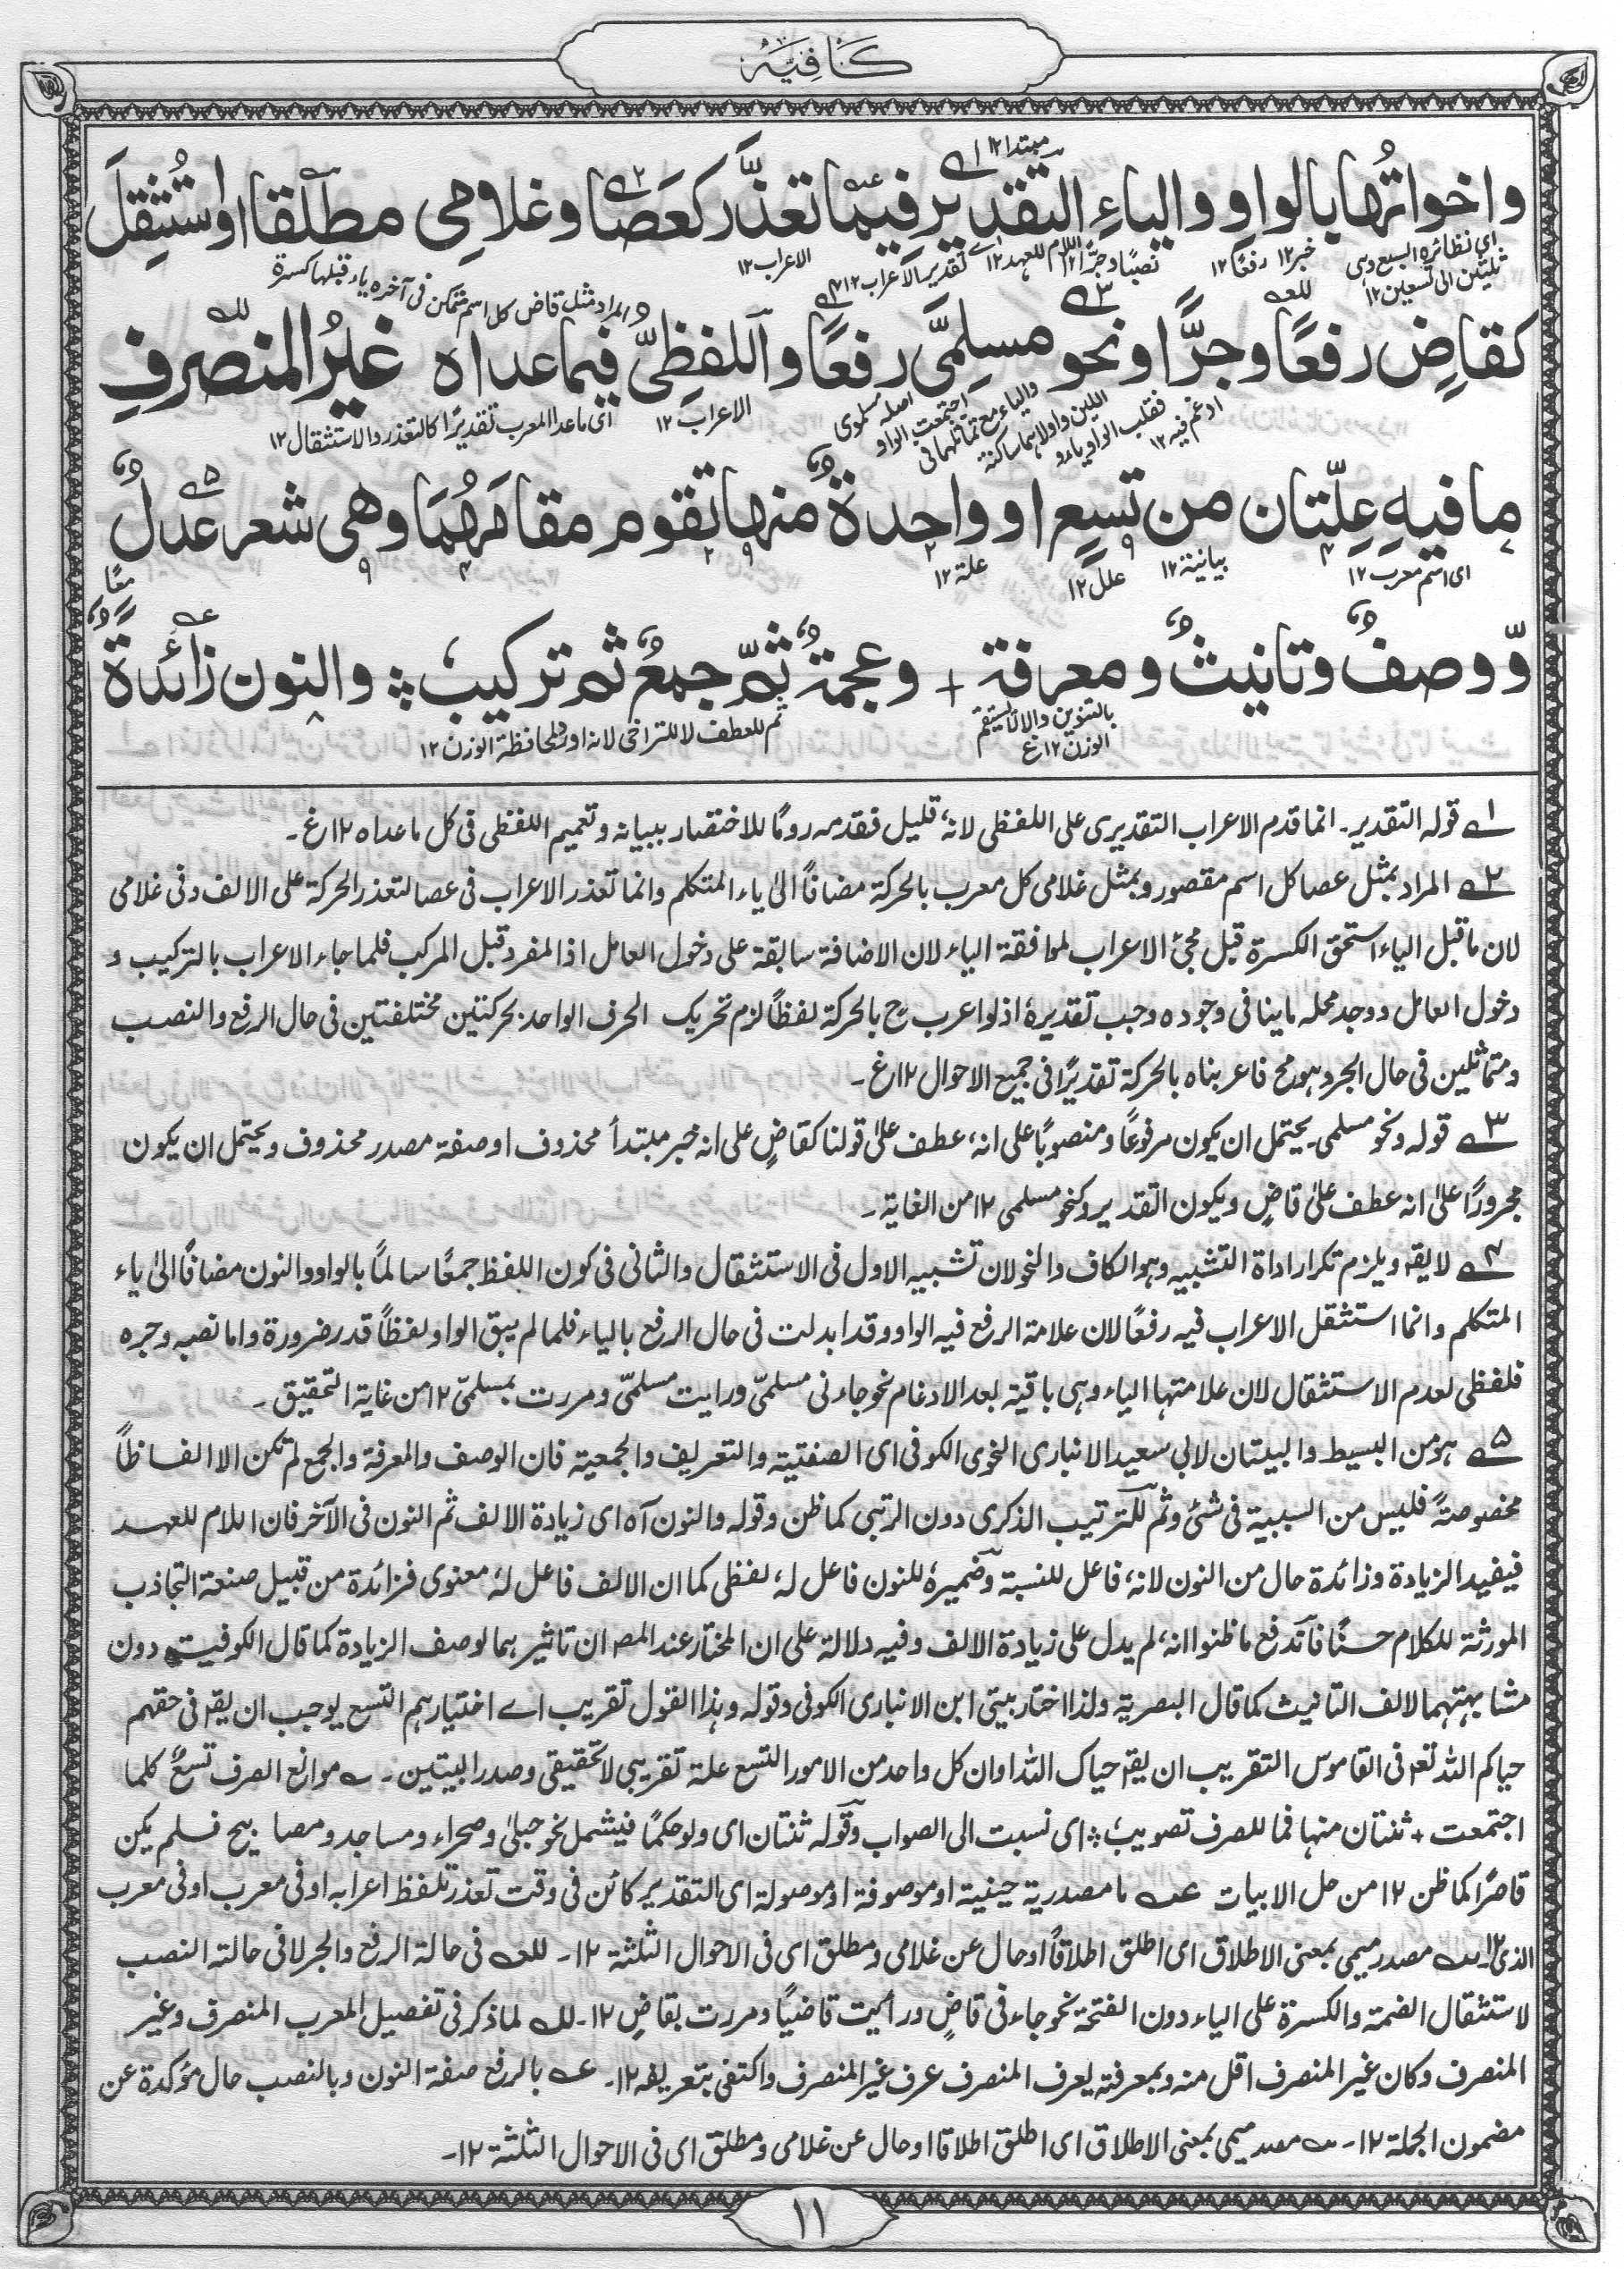 كَافِيَه
مبتدا ١٢
واخواتُها بالواوِ والياءِ التقديرُ فيما تعذّر كعَصًا وغلامِی مطلقا او استُثقِلَ
ای نظائره السبع وہی ثلثین الی تسعین ١٢ خبر ١٢ رفعًا ١٢ نصبًا وجرًّا ١٢ اللام للعهد ١٢ ای تقدير الاعراب ١٢ الاعراب ١٢
المراد مثل قاض كل اسم متمكن فی آخره ياء قبلها كسرة
كقاضٍ رفعًا وجرًّا ونحو مسلمِیَّ رفعًا واللفظِیُّ فيما عداه غيرُ المنصرفِ
اصله مسلموی اجتمعت الواو والياء مع تماثلهما فی اللين واولاهما ساكنة فقلب الواو ياء و ادغم فيه ١٢ الاعراب ١٢ ای ما عدا المعرب تقديرًا كالتعذر والاستثقال ١٢
ما فيهِ عِلّتان من تسعٍ او واحدةٌ منها تقوم مقامَهُمَا وهی شعر عدلٌ
ای اسم معرب ١٢ بيانية ١٢ علل ١٢ علة ١٢
معًا
وّوصفٌ وتانيثٌ ومعرفة + وعجمةٌ ثمّ جمعٌ ثم تركيبٌ ÷ والنون زائدةً
بالتنوين والا لا يستقم الوزن ١٢ غ ثم للعطف لا للتراخی لانه اورد لمحافظة الوزن ١٢
١ قوله التقدير۔ انما قدم الاعراب التقديری علی اللفظی لانه، قليل فقدمه رومًا للاختصار ببيانه وتعميم اللفظی فی كل ما عداه ١٢ غ۔
٢ المراد بمثل عصا كل اسم مقصور وبمثل غلامی كل معرب بالحركة مضافاً الیٰ ياء المتكلم وانما تعذر الاعراب فی عصا لتعذر الحركة علی الالف وفی غلامی
لان ما قبل الياء استحق الكسرة قبل مجئ الاعراب لموافقة الياء لان الاضافة سابقة علی دخول العامل اذ المفرد قبل المركب فلما جاء الاعراب بالتركيب و
دخول العامل ووجد محله ما ينافی وجوده وجب تقديره اذ لو اعرب ح بالحركة لفظاً لزم تحريك الحرف الواحد بحركتين مختلفتين فی حال الرفع والنصب
ومتماثلين فی حال الجر وهو مح فاعربناه بالحركة تقديرًا فی جميع الاحوال ١٢ غ۔
٣ قوله ونحو مسلمی يحتمل ان يكون مرفوعًا ومنصوبًا علی انه، عطف علیٰ قولنا كقاضٍ علی انه خبر مبتدأ محذوف او صفة مصدر محذوف ويحتمل ان يكون
مجرورًا علیٰ انه عطف علیٰ قاضٍ ويكون التقدير وكنحو مسلمی ١٢ من الغاية۔
٤ لا يقه ويلزم تكرار اداة التشبيه وہو الكاف والنحو لان تشبيه الاول فی الاستثقال والثانی فی كون اللفظ جمعًا سالماً بالواو والنون مضافاً الیٰ ياء
المتكلم وانما استثقل الاعراب فيه رفعًا لان علامة الرفع فيه الواو وقد ابدلت فی حال الرفع بالياء فلما لم يبق الواو لفظاً قدر ضرورة واما نصبه وجره
فلفظی لعدم الاستثقال لان علامتها الياء وہی باقية بعد الادغام نحو جاءنی مسلمیّ ورايت مسلمیّ ومررت بمسلمیّ ١٢ من غاية التحقيق۔
٥ ہو من البسيط والبيتان لابی سعيد الانباری النحوی الكوفی ای الصفتية والتعريف والجمعية فان الوصف والمعرفة والجمع لم تكن الا الفاظاً
مخصوصةً فليس من السببية فی شئ وثم للترتيب الذكری دون الرتبی كما ظن وقوله والنون آه ای زيادة الالف ثم النون فی الآخر فان اللام للعهد
فيفيد الزيادة وزائدة حال من النون لانه، فاعل للنسبة وضميره للنون فاعل له، لفظی كما ان الالف فاعل له، معنوی فزائدة من قبيل صنعة التجاذب
المورثة للكلام حسنًا فاندفع ما ظنوا انه، لم يدل علی زيادة الالف وفيه دلالة علی ان المختار عند المصـ ان تاثيرہما لوصف الزيادة كما قال الكوفيته دون
مشابہتہما لالف التانيث كما قال البصرية ولذا اختار بيتی ابن الانباری الكوفی وقوله وہذا القول تقريب اے اختيارہم التسع يوجب ان يقه فی حقهم
حياكم اللہ تعـ فی القاموس التقريب ان يقه حياك اللہ او ان كل واحد من الامور التسع علة تقريبی لا تحقيقی وصدر البيتين۔ موانع الصرف تسعٌ كلما
اجتمعت + ثنتان منها فما للصرف تصويبٗ ÷ ای نسبت الی الصواب وقوله ثنتان ای ولو حكمًا فيشمل نحو حبلیٰ وصحراء ومساجد ومصابيح فلم يكن
قاصرًا كما ظن ١٢ من حل الابيات عـه ما مصدرية حينية او موصوفة او موصولة ای التقدير كائن فی وقت تعذر تلفظ اعرابه او فی معرب او فی معرب
الذی ١٢۔ مصدر ميمی بمعنی الاطلاق ای اطلق اطلاقاً او حال عن غلامی ومطلق ای فی الاحوال الثلثة ١٢۔ للعه فی حالة الرفع والجر لا فی حالة النصب
لاستثقال الضمة والكسرة علی الياء دون الفتحة نحو جاءنی قاضٍ ورأيت قاضيًا ومررت بقاضٍ ١٢۔ لله لما ذكر فی تفصيل المعرب المنصرف وغير
المنصرف وكان غير المنصرف اقل منه وبمعرفته يعرف المنصرف عرف غير المنصرف واكتفی بتعريفه ١٢۔ عـه بالرفع صفة النون وبالنصب حال مؤكدة عن
مضمون الجملة ١٢۔ مصدر ميمی بمعنی الاطلاق ای اطلق اطلاقا او حال عن غلامی ومطلق ای فی الاحوال الثلثة ١٢۔
١١